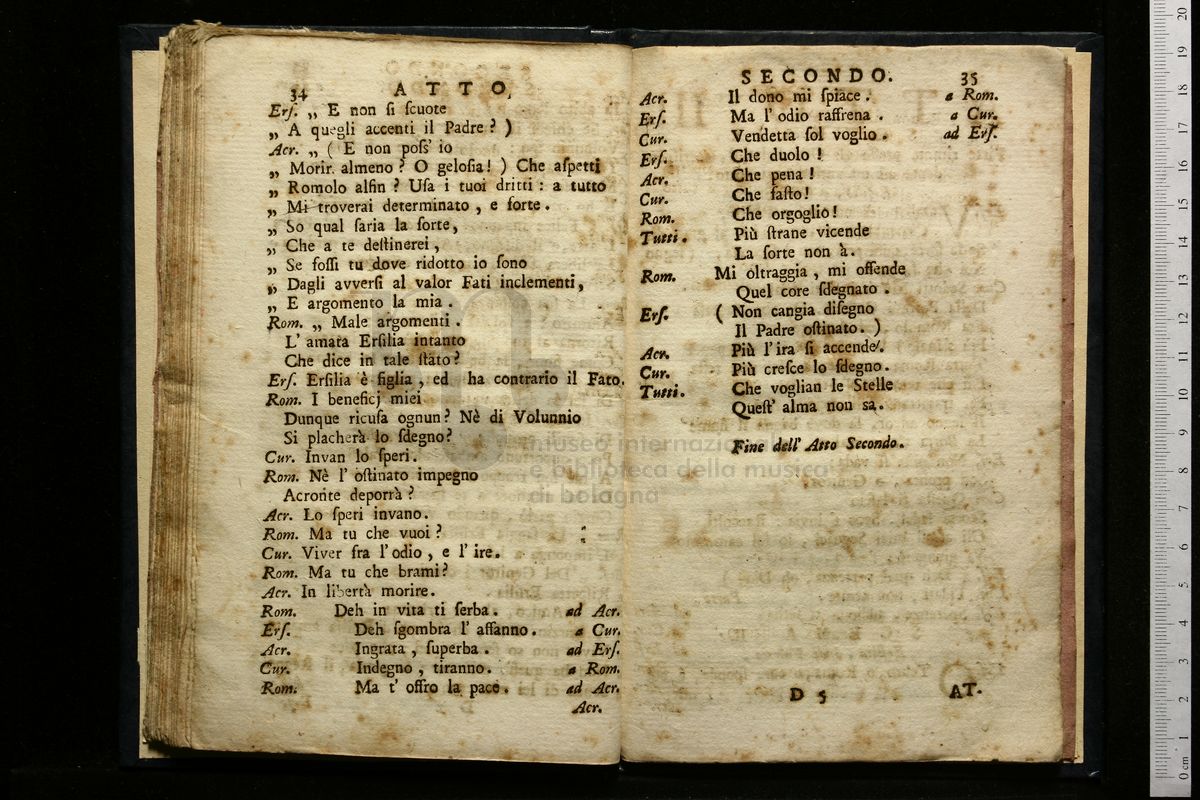 34 ATTO
Erſ. „ E non ſi ſcuote
„ A quegli accenti il Padre? )
Acr. „ ( E non poſſ' io
„ Morir almeno? O geloſia! ) Che aſpetti
„ Romolo alfin? Uſa i tuoi dritti: a tutto
„ Mi troverai determinato, e forte.
„ So qual ſaria la ſorte,
„ Che a te deſtinerei,
„ Se foſſi tu dove ridotto io ſono
„ Dagli avverſi al valor Fati inclementi,
„ E argomento la mia.
Rom. „ Male argomenti.
L' amata Erſilia intanto
Che dice in tale ſtato?
Erſ. Erſilia è figlia, ed ha contrario il Fato.
Rom. I beneficj miei
Dunque ricuſa ognun? Nè di Volunnio
Si placherà lo ſdegno?
Cur. Invan lo ſperi.
Rom. Nè l' oſtinato impegno
Acronte deporrà?
Acr. Lo ſperi invano.
Rom. Ma tu che vuoi?
Cur. Viver fra l' odio, e l' ire.
Rom. Ma tu che brami?
Acr. In libertà morire.
Rom. Deh in vita ti ſerba. ad Acr.
Erſ. Deh ſgombra l' affanno. a Cur.
Acr. Ingrata, ſuperba. ad Erſ.
Cur. Indegno, tiranno. a Rom.
Rom. Ma t' offro la pace. ad Acr.
Acr.
SECONDO. 35
Acr. Il dono mi ſpiace. a Rom.
Erſ. Ma l' odio raffrena. a Cur.
Cur. Vendetta ſol voglio. ad Erſ.
Erſ. Che duolo!
Acr. Che pena!
Cur. Che faſto!
Rom. Che orgoglio!
Tutti. Più ſtrane vicende
La ſorte non à.
Rom. Mi oltraggia, mi offende
Quel core ſdegnato.
Erſ. ( Non cangia diſegno
Il Padre oſtinato. )
Acr. Più l' ira ſi accende.
Cur. Più creſce lo ſdegno.
Tutti. Che voglian le Stelle
Queſt' alma non sa.
Fine dell' Atto Secondo.
D 5 AT-
museo internazionale
e biblioteca della musica
di bologna
0 cm 1 2 3 4 5 6 7 8 9 10 11 12 13 14 15 16 17 18 19 20